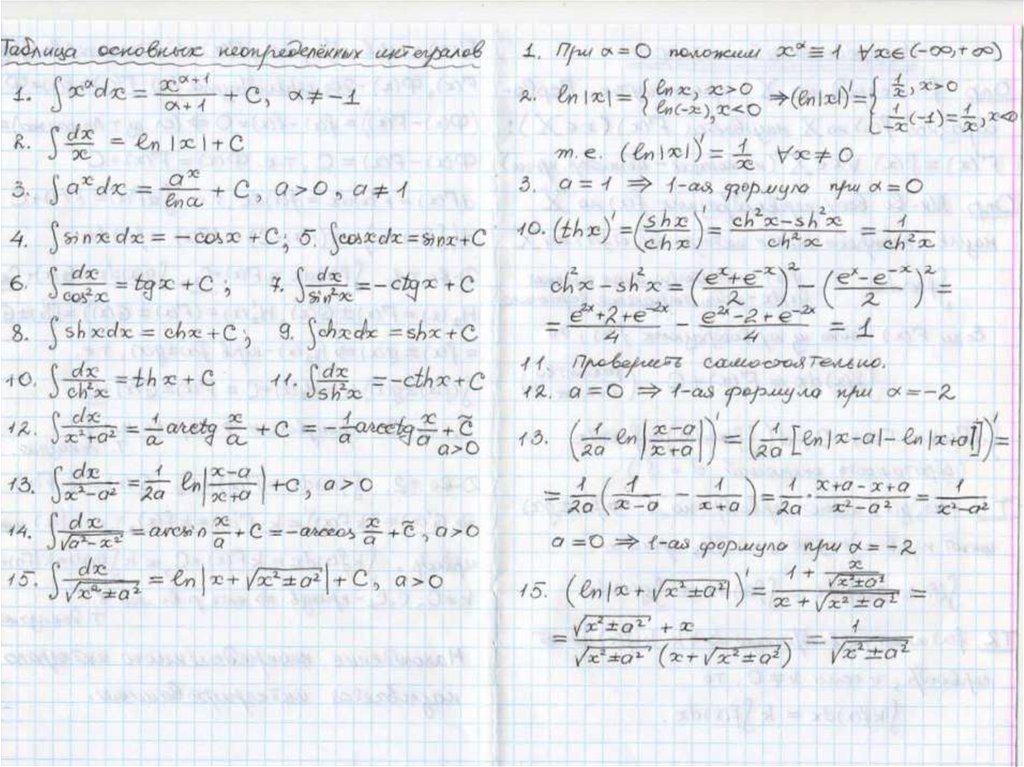 Таблица основных неопределённых интегралов
1. ∫x^α dx = x^(α+1)/(α+1) + C, α ≠ -1
2. ∫dx/x = ln|x| + C
3. ∫a^x dx = a^x/lna + C, a>0, a≠1
4. ∫sinxdx = -cosx + C; 5. ∫cosxdx = sinx + C
6. ∫dx/cos²x = tgx + C; 7. ∫dx/sin²x = -ctgx + C
8. ∫shxdx = chx + C; 9. ∫chxdx = shx + C
10. ∫dx/ch²x = thx + C 11. ∫dx/sh²x = -cthx + C
12. ∫dx/(x²+a²) = 1/a arctg x/a + C = -1/a arcctg x/a + C̃ a>0
13. ∫dx/(x²-a²) = 1/2a ln|(x-a)/(x+a)| + C, a>0
14. ∫dx/√(a²-x²) = arcsin x/a + C = -arccos x/a + C̃, a>0
15. ∫dx/√(x²±a²) = ln|x + √(x²±a²)| + C, a>0
1. При α=0 положим x^α ≡ 1 ∀x∈(-∞,+∞)
2. ln|x| = {lnx, x>0; ln(-x), x<0 ⇒ (ln|x|)' = {1/x, x>0; 1/-x(-1) = 1/x, x<0
т.е. (ln|x|)' = 1/x ∀x≠0
3. a=1 ⇒ 1-ая формула при α=0
10. (thx)' = (shx/chx)' = (ch²x-sh²x)/ch²x = 1/ch²x
ch²x - sh²x = ((e^x+e^-x)/2)² - ((e^x-e^-x)/2)² =
= (e^2x+2+e^-2x)/4 - (e^2x-2+e^-2x)/4 = 1
11. Проверить самостоятельно.
12. a=0 ⇒ 1-ая формула при α=-2
13. (1/2a ln|(x-a)/(x+a)|)' = (1/2a [ln|x-a| - ln|x+a|])' =
= 1/2a (1/(x-a) - 1/(x+a)) = 1/2a · (x+a-x+a)/(x²-a²) = 1/(x²-a²)
a=0 ⇒ 1-ая формула при α=-2
15. (ln|x + √(x²±a²)|)' = (1 + x/√(x²±a²))/(x + √(x²±a²)) =
= (√(x²±a²) + x)/(√(x²±a²) (x + √(x²±a²))) = 1/√(x²±a²)